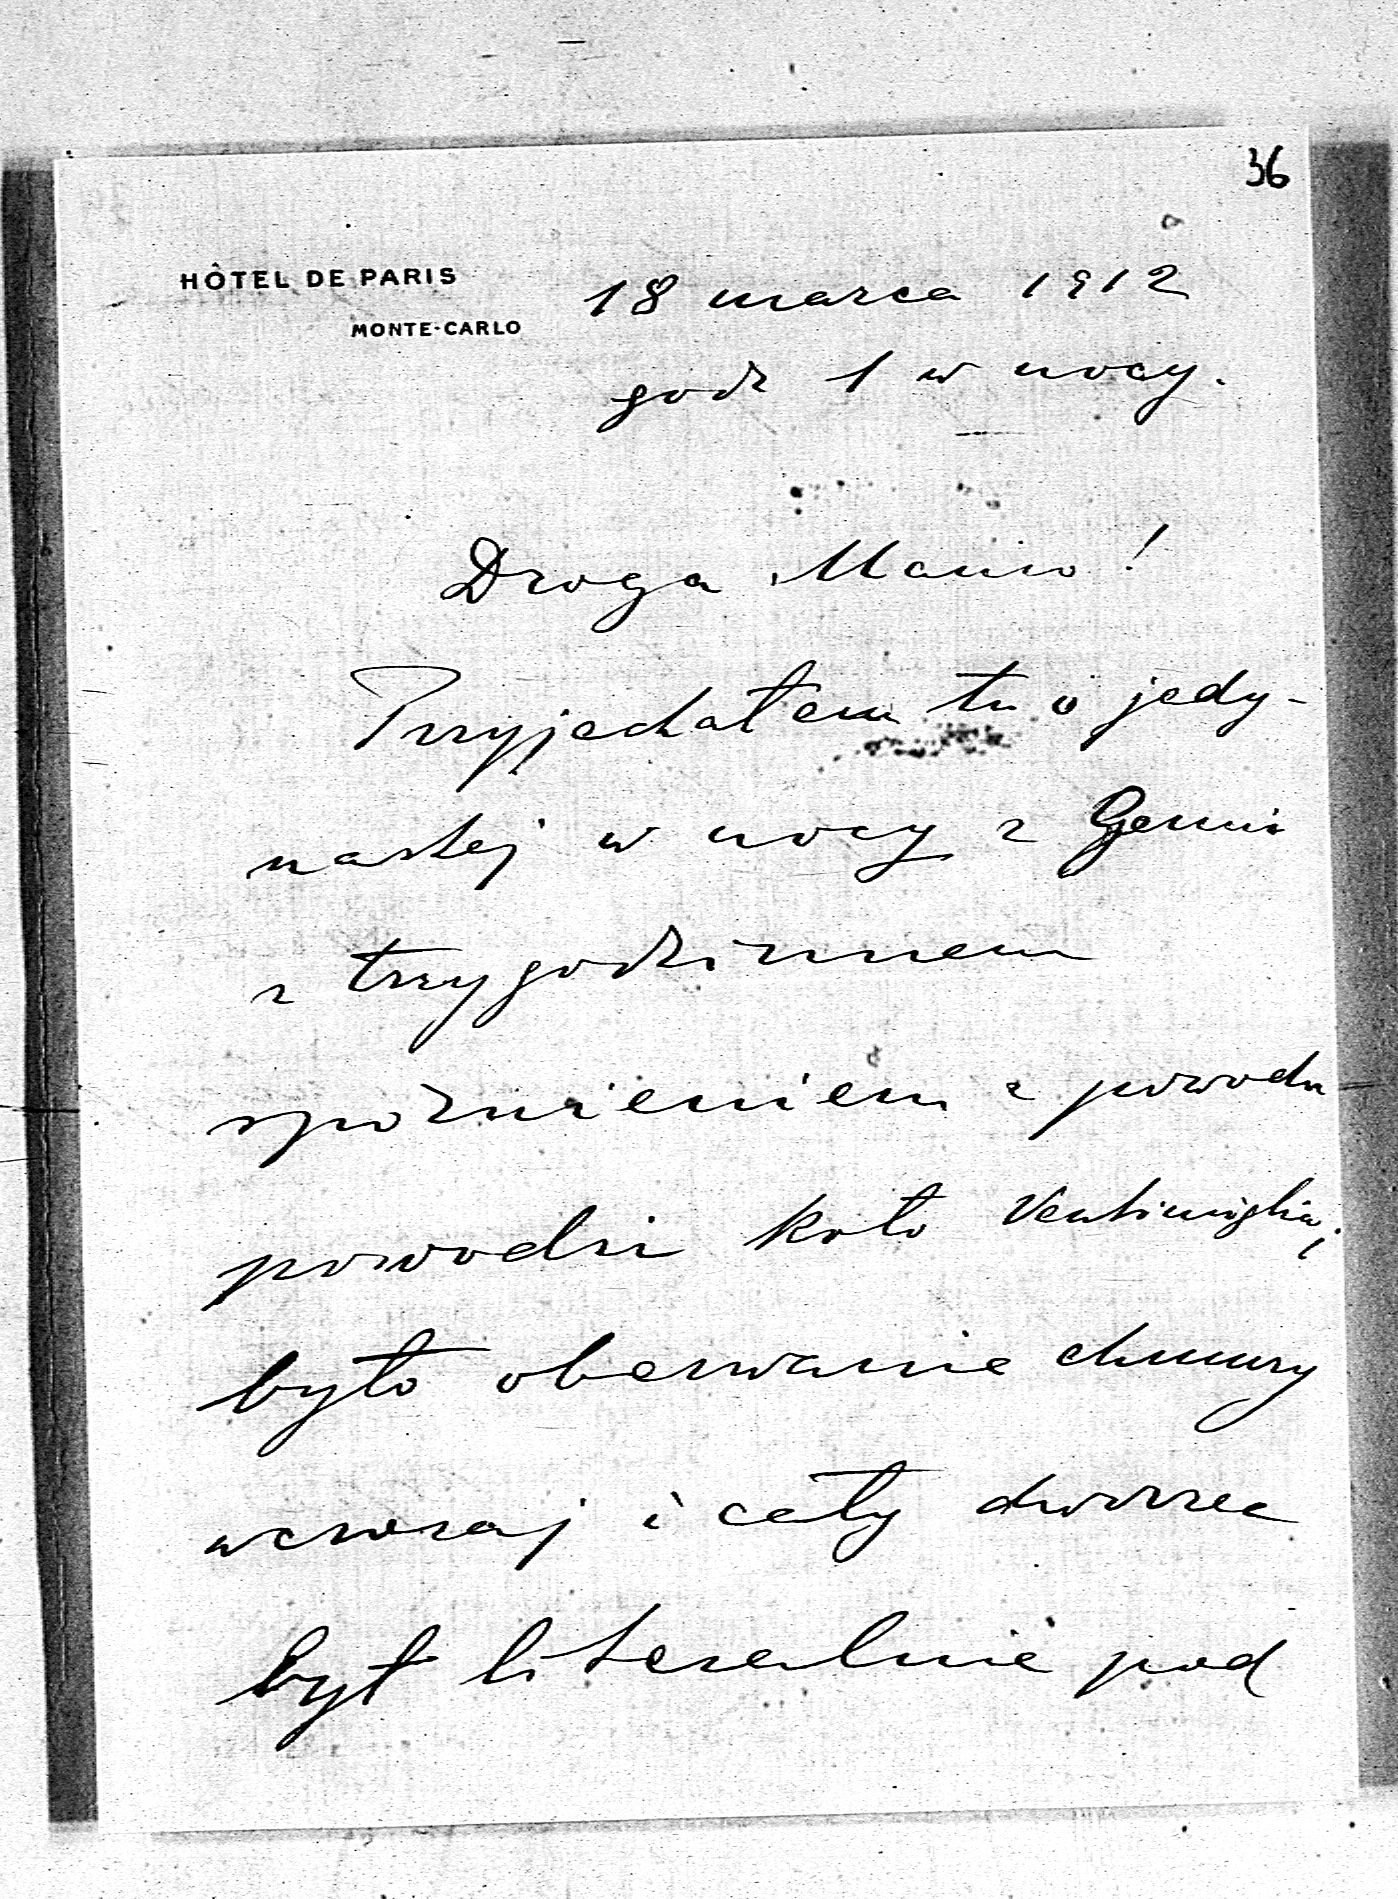 36
HÔTEL DE PARIS
MONTE-CARLO
18 marca 1912
godz 1 w nocy.
Droga Maniu!
Przyjechałem tu o jedy-
nastej w nocy z Genui
z trzygodzinnem
spoznieniem z powodu
powodzi koło Ventimiglia;
było oberwanie chmury
wczoraj i cały dworzec
był literalnie pod